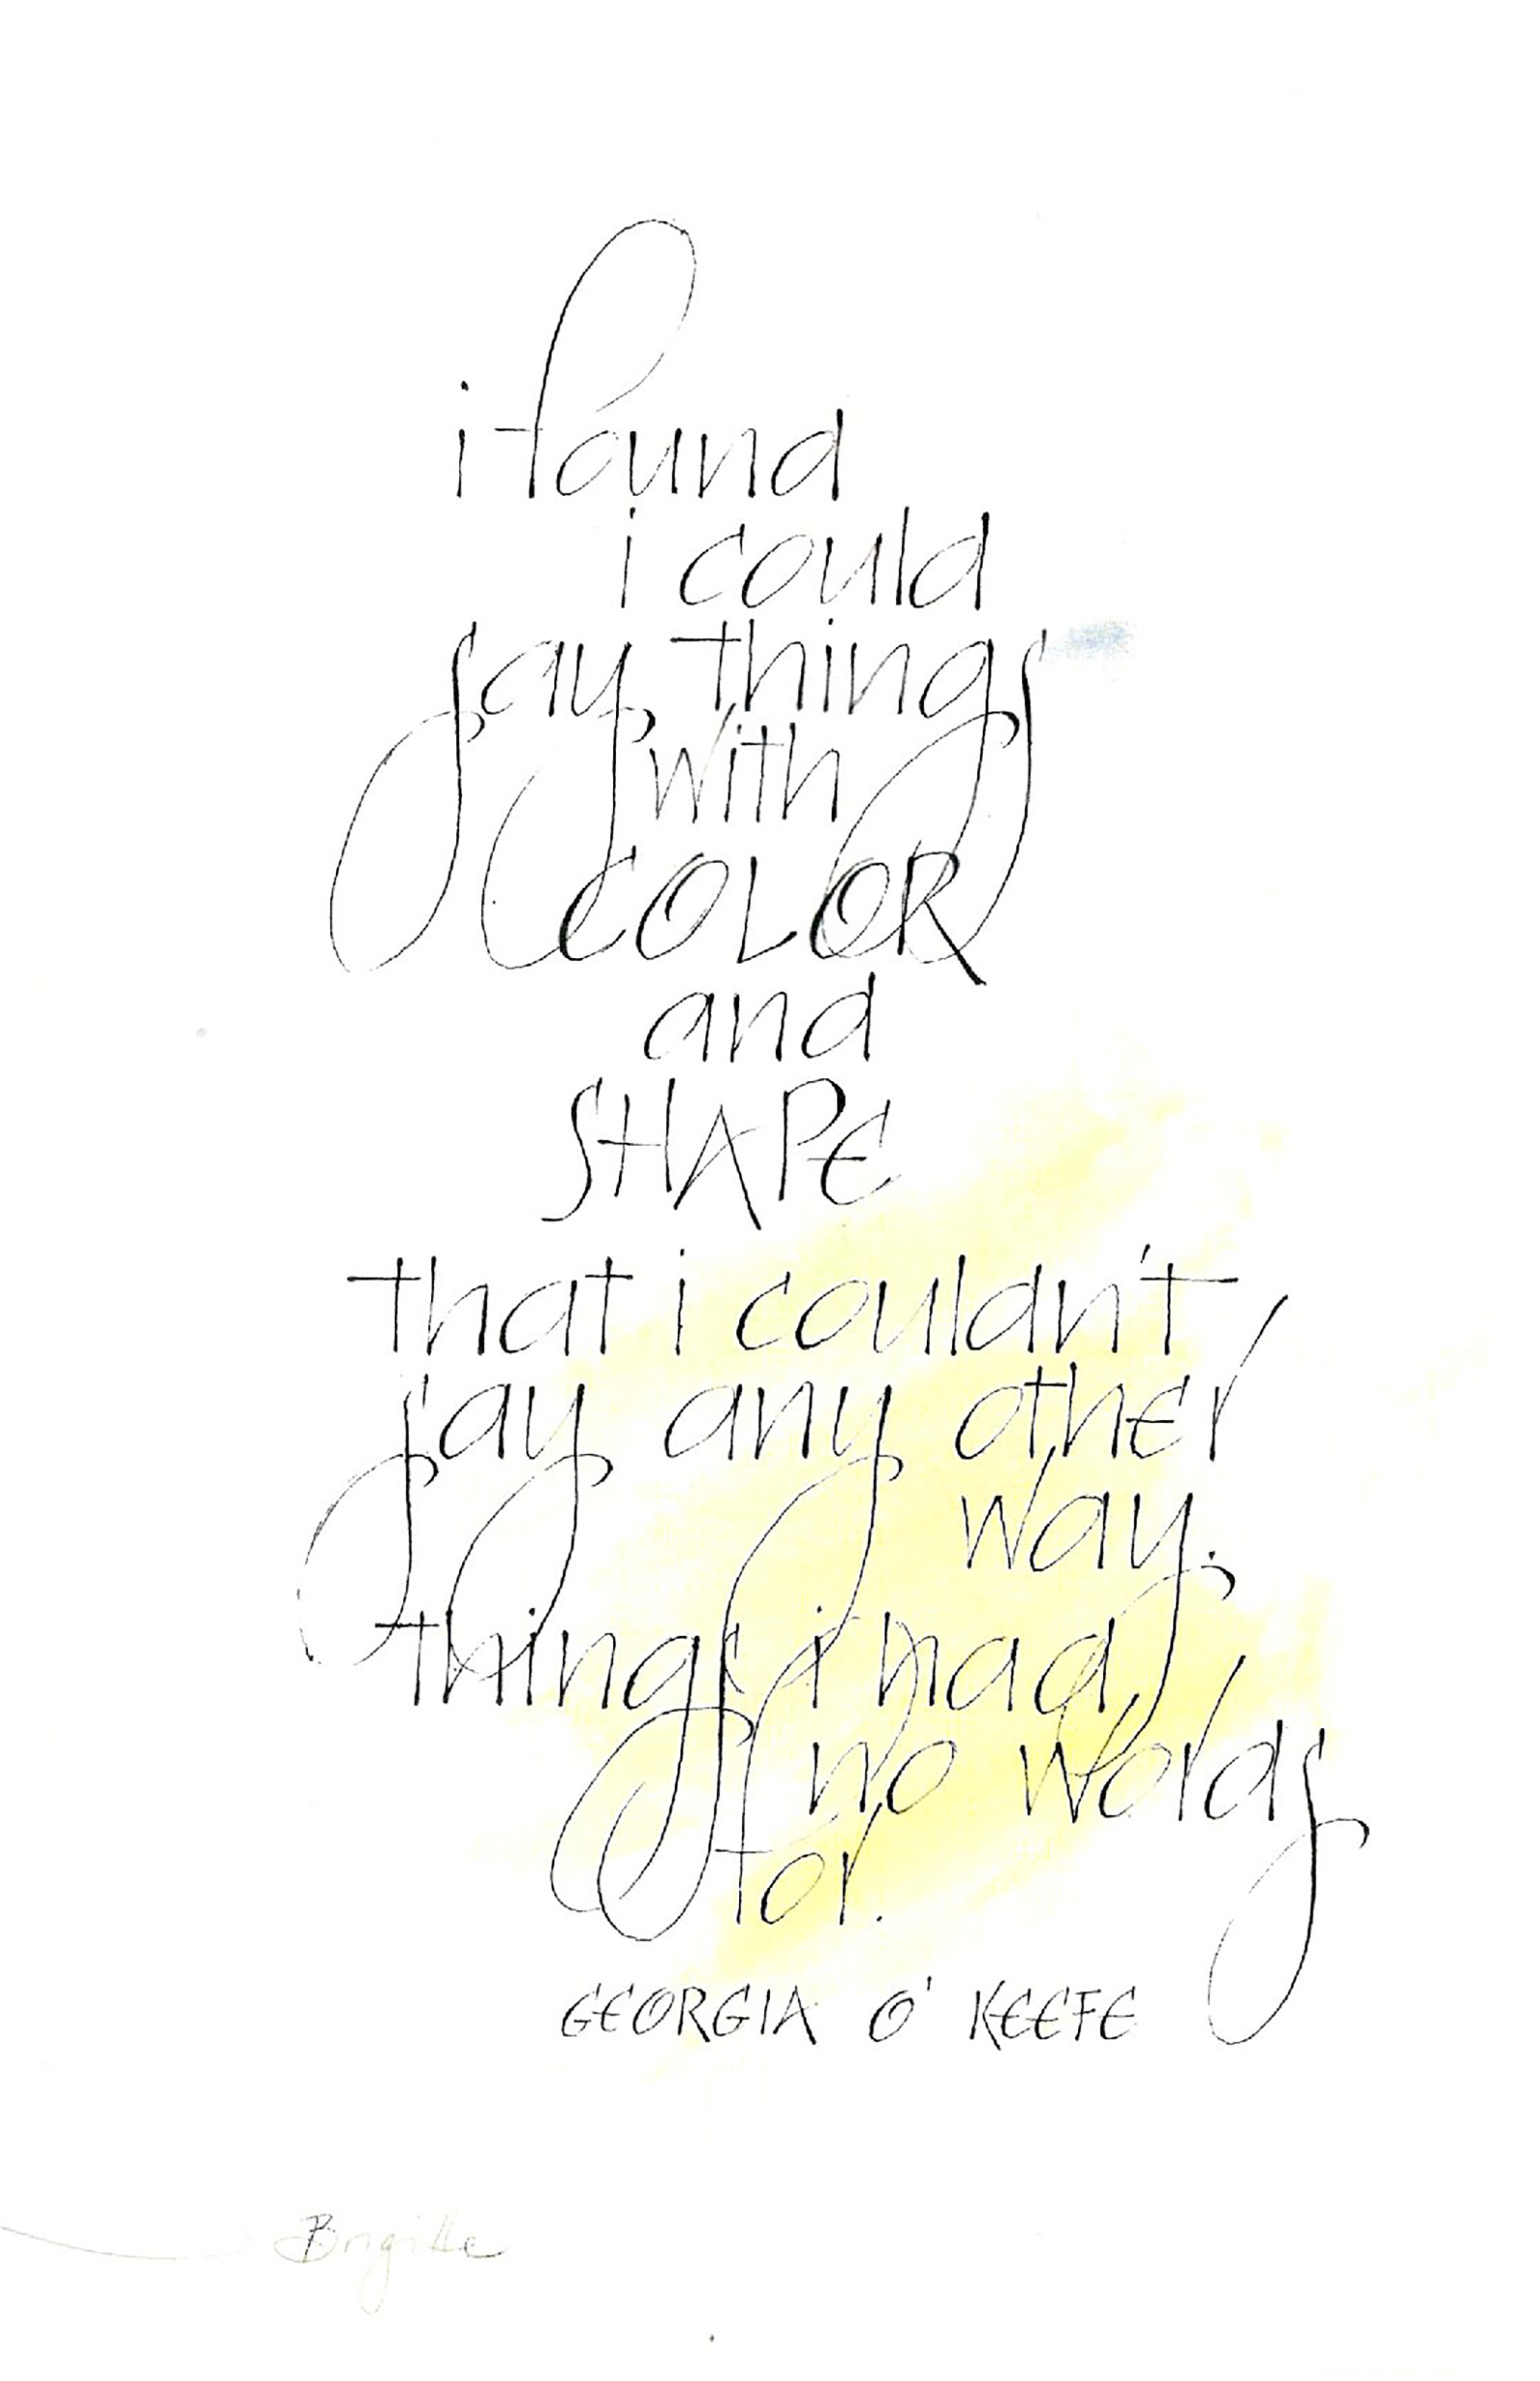 i found
i could
say things
with
COLOR
and
SHAPE
that i couldn't
say any other
way.
things i had
no words
for.
GEORGIA O' KEEFE
Brigitte